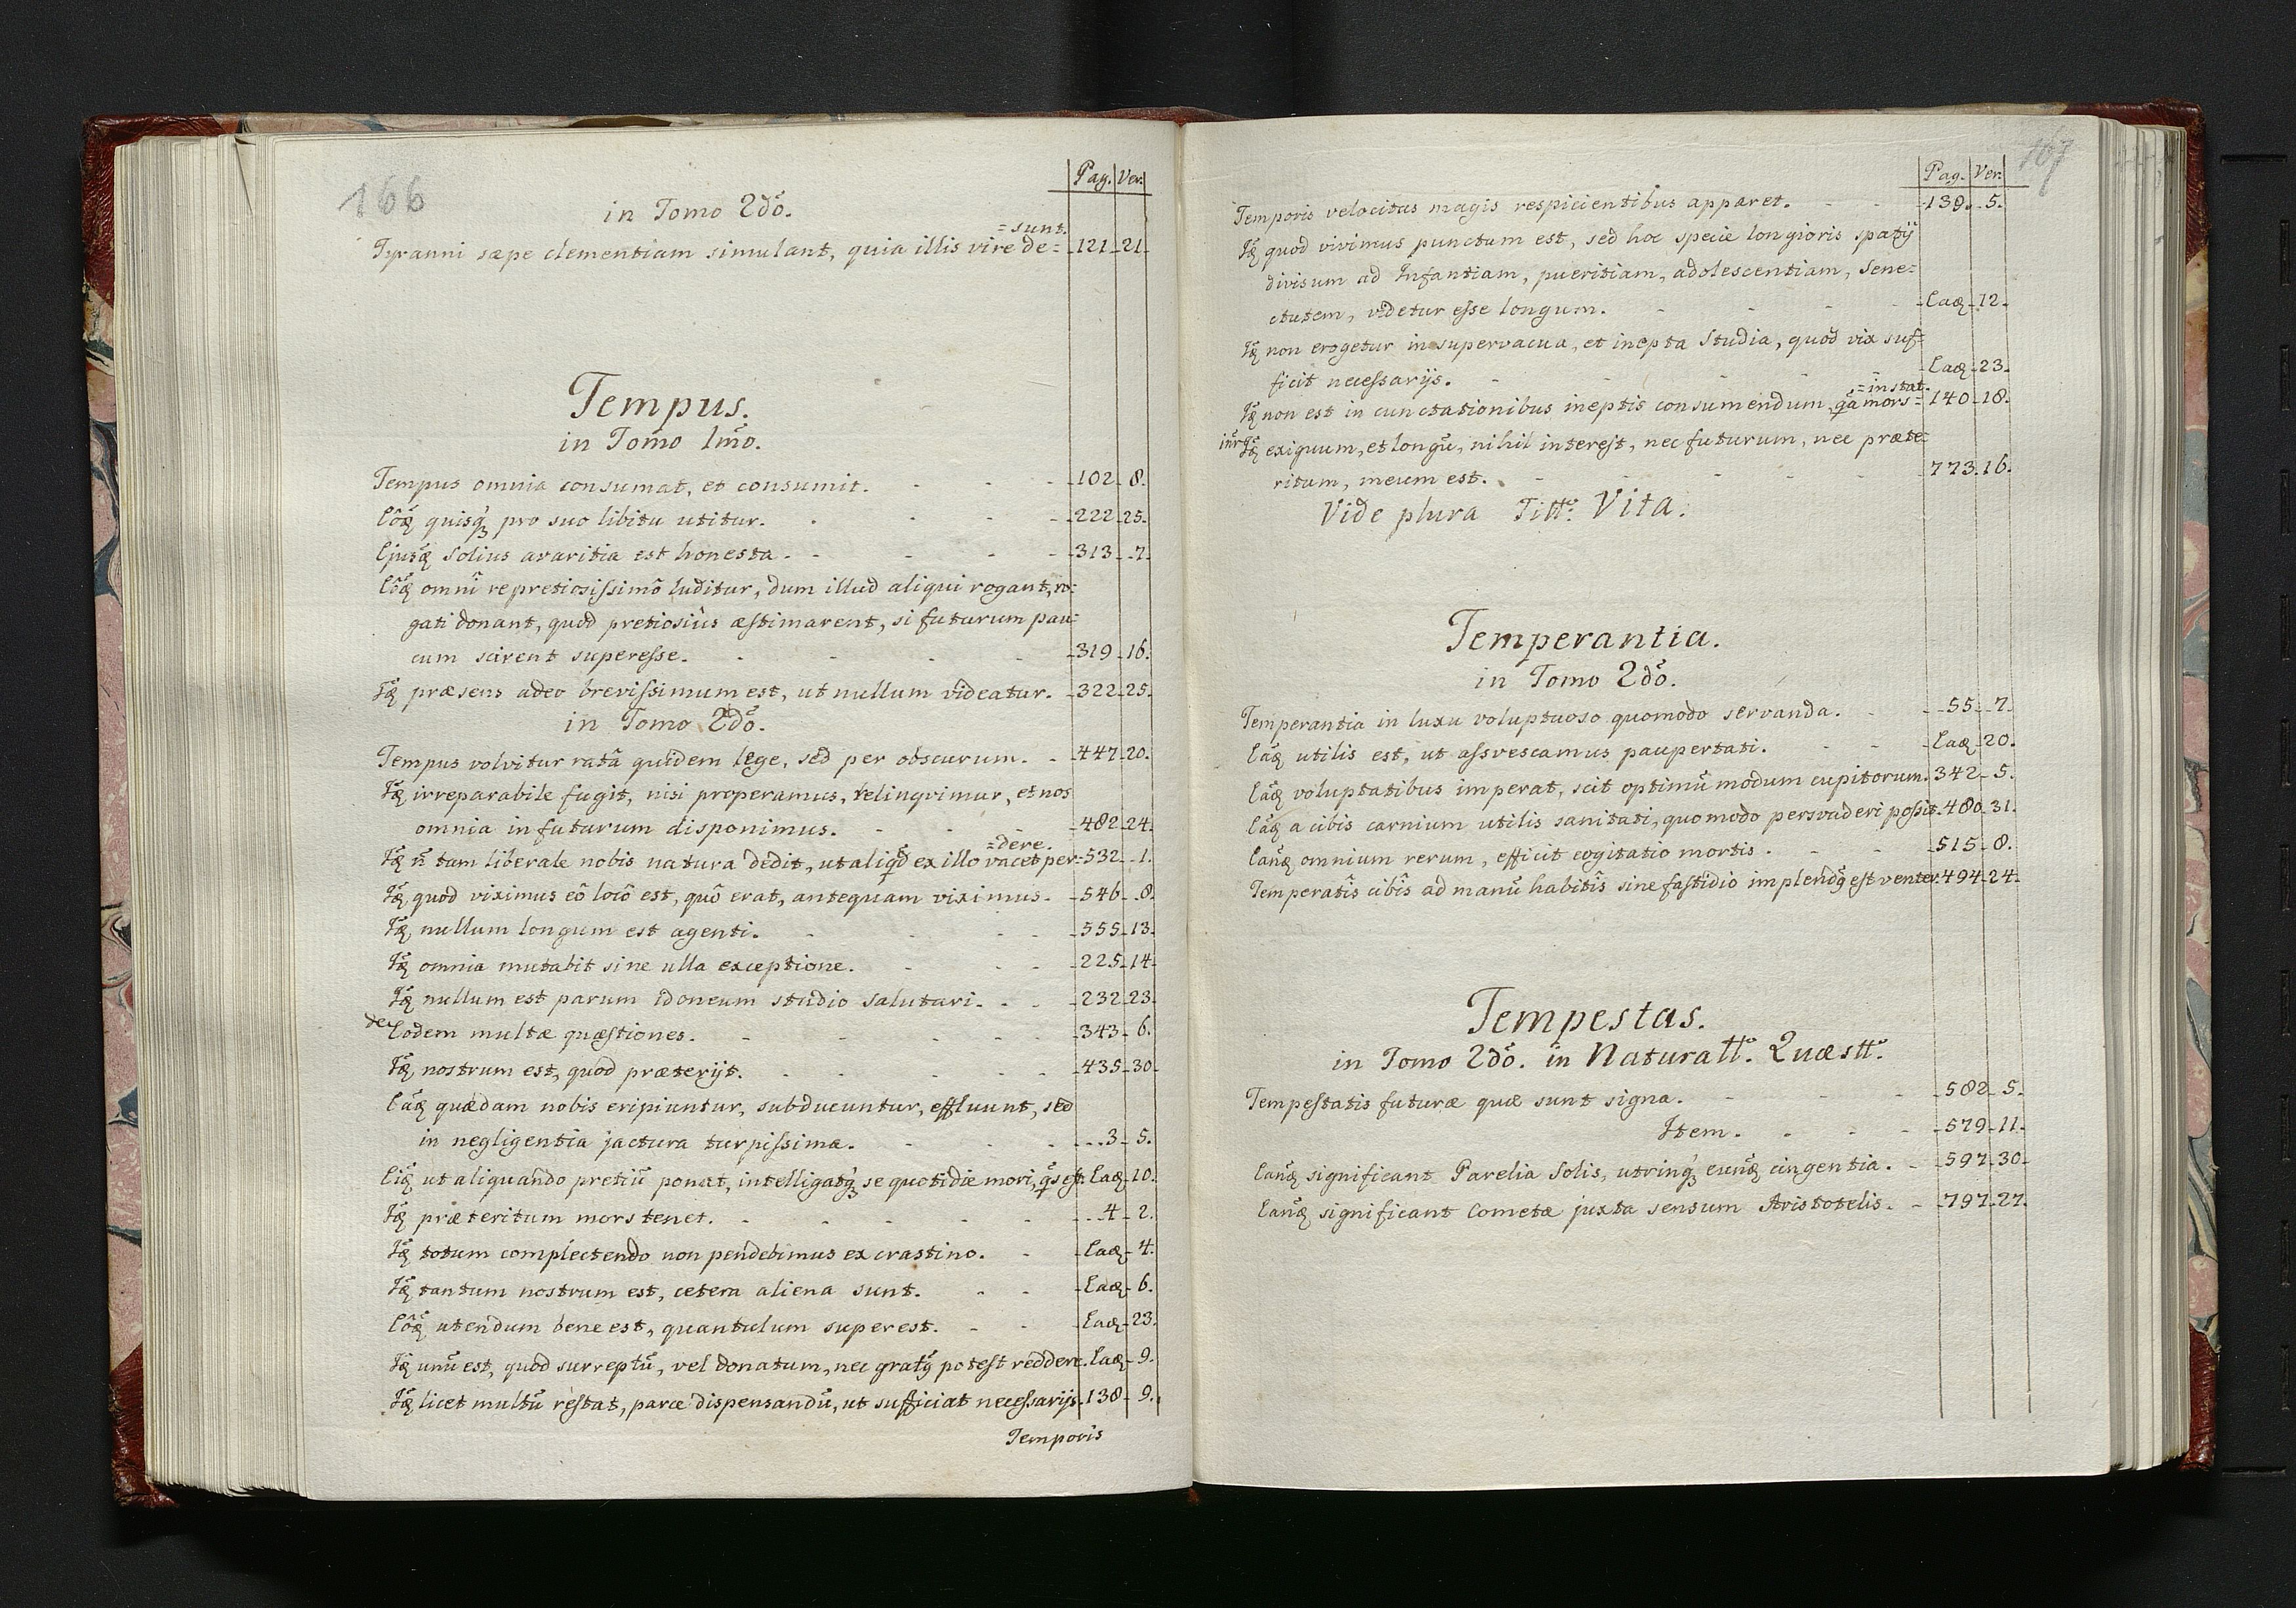 166
Pag. Ver.
in Tomo 2dŏ.
=sunt.
Tyranni sæpe clementiam simulant, quia illis vire de= 121 21
Tempus.
in Tomo 1mŏ.
Tempus omnia consumat, et consumit. 102 8.
Eôꝗ quisqꝫ pro suo libitu utitur. 222 25.
Ejusꝗ solius avaritia est honesta. 313 7.
Eôꝗ omnî re pretiosissimô luditur, dum illud aliqui rogant, ro=
gati donant, quod pretiosiùs æstimarent, si futurum pau=
cum scirent superesse. 319 16.
Iꝗ præsens adeo brevissimum est, ut nullum videatur. 322 25.
in Tomo 2dŏ.
Tempus volvitur ratâ quidem lege, sed per obscurum. 447 20.
Iꝗ irreparabile fugit, nisi properamus, relinqvimur, et nos
omnia in futurum disponimus. 482 24.
=dere.
Iꝗ ñ tam liberale nobis natura dedit, ut aliqd ex illo vacet per= 532 1.
Iꝗ quod viximus eô locô est, quô erat, antequam viximus. 546 8.
Iꝗ nullum longum est agenti. 555 13.
Iꝗ omnia mutabit sine ulla exceptione. 225 14
Iꝗ nullum est parum idoneum studio salutari. 232 23.
de Eodem multæ quæstiones. 343 6.
Iꝗ nostrum est, quod præterijt. 435 30.
Eaꝗ quædam nobis eripiuntur, subducuntur, effluunt, sed
in negligentia jactura turpissima. 3 5.
Eiꝗ ut aliquando pretiũ ponat, intelligatqꝫ se quotidie mori, qs est. Eaꝗ 10.
Iꝗ præteritum mors tenet. 4 2.
Iꝗ totum complectendo non pendebimus ex crastino. Eaꝗ 4.
Iꝗ tantum nostrum est, cetera aliena sunt. Eaꝗ 6.
Eôꝗ utendum bene est, quantulum superest. Eaꝗ 23.
Iꝗ unũ est, quod surreptũ, vel donatum, nec gratꝯ potest reddere. Eaꝗ 9.
Iꝗ licet multũ restat, parce dispensandũ, ut sufficiat necessarijs. 138 9.
Temporis
167
Pag. Ver.
Temporis velocitas magis respicientibus apparet. 139. 5.
Iꝗ quod vivimus punctum est, sed hoc specie longioris spatij
divisum ad Infantiam, pueritiam, adolescentiam, Sene=
ctutem, videtur esse longum. Eaꝗ 12.
Iꝗ non erogetur in supervacua, et inepta Studia, quod vix suf=
ficit necessarijs. Eaꝗ 23.
=instat.
Iꝗ non est in cunctationibus ineptis consumendum, qa mors= 140 18.
inr Iꝗ exiguum, et longũ, nihil interest, nec futurum, nec præte=
ritum, meum est. 773. 16.
Vide plura Titt: Vita.
Temperantia.
in Tomo 2dŏ.
Temperantia in luxu voluptuoso quomodo servanda. 55 7.
Eaꝗ utilis est, ut assvescamus paupertati. Eaꝗ 20.
Eaꝗ voluptatibus imperat, scit optimũ modum cupitorum. 342 5.
Eaꝗ a cibis carnium utilis sanitati, quomodo persvaderi possit. 480 31.
Eanꝗ omnium rerum, efficit cogitatio mortis. 515 8.
Temperatîs cibîs ad manũ habitîs sine fastidio implendꝯ est venter. 494 24.
Tempestas.
in Tomo 2dŏ. in Naturatt: Quæstt:
Tempestatis futuræ quæ sunt signa. 582 5.
Item. 579 11.
Eanꝗ significant Parelia Solis, utrinqꝫ eunꝗ cingentia. 597 30.
Eanꝗ significant Cometæ juxta sensum Aristotelis. 797 27.